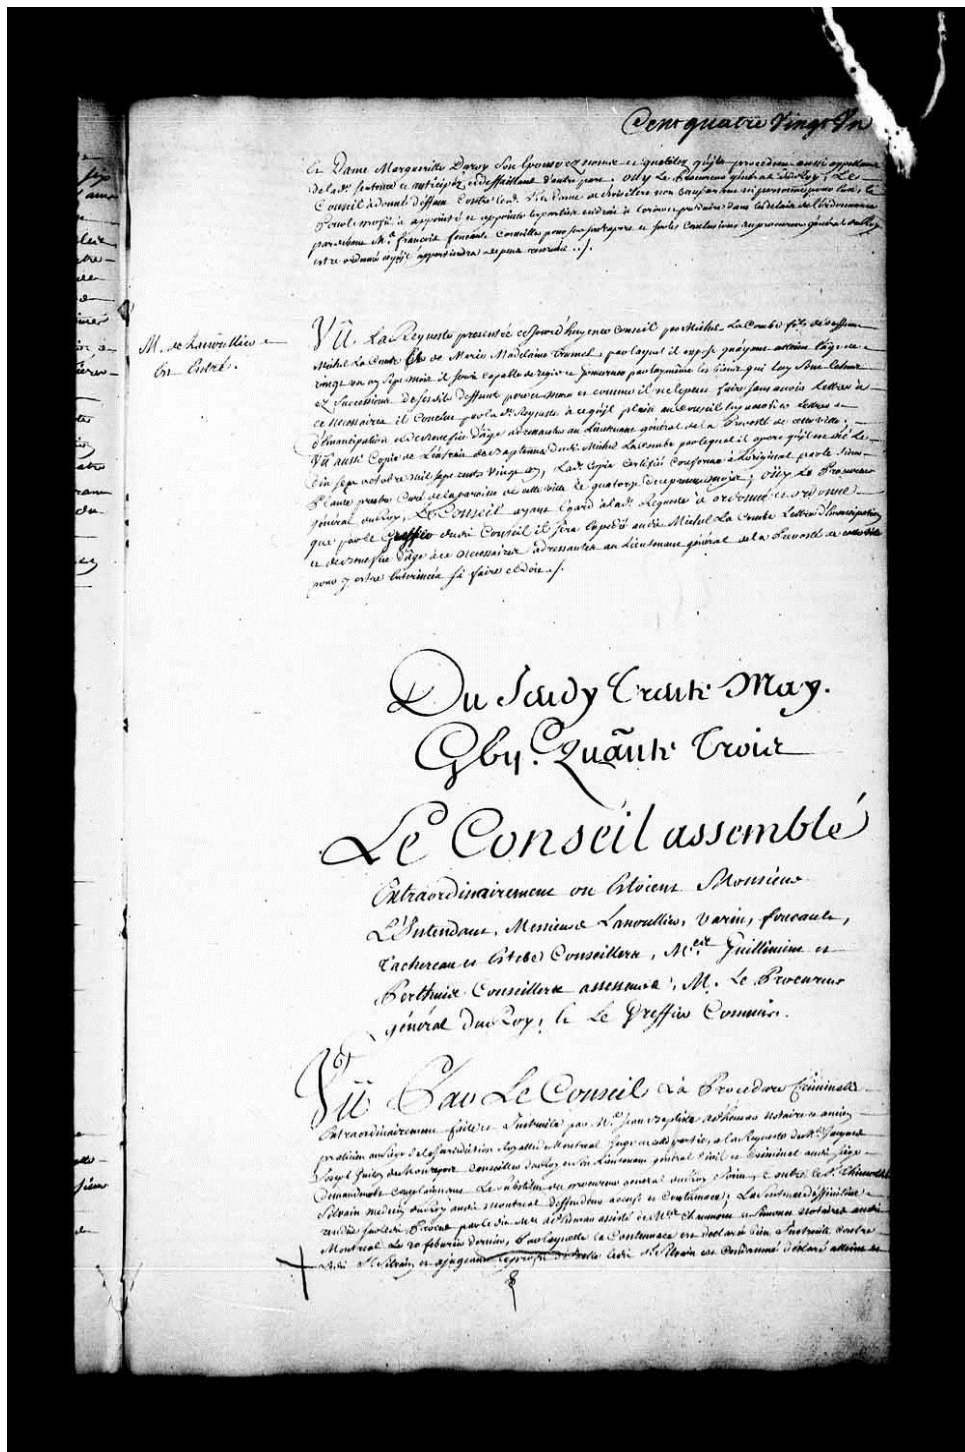 Cent quatre Vingt Un
et Dame Marguerite Duroy Son Epouse ez noms et qualitez qu'ils procedent aussi appellans
de lad.e sentence et anticipez et deffaillans d'autre part. Ouy Le Procureur général du Roy; Le
Conseil a donné deffaut Contre
par devant M.e François foucault Conseiller pour son raport et sur les Conclusions du procureur général du Roy
estre ordonné ce qu'il appartiendra depens reservés ./.
M. de Lanoullier
Est Entré.
Vû La Requeste presentée cejourd'huy en ce Conseil par Michel La Combe fils de deffunt
Michel La Combe et de Marie Madelaine par laquel il expose qu'ayant atteint l'âge de
vingt un ans Sept mois il seroit capable de regir et gouverner par luy même les biens qui luy sont échus
ez Successions de sesdits deffunts pere et mere et comme il ne le peut faire sans avoir Lettres à
ce necessaires il Conclut par la d.e Requeste à ce qu'il plaise au Conseil luy accorder Lettres
d'émancipation et de benefice d'âge adressantes au Lieutenant général de la Prevosté de cette ville.
Vû aussi Copie de L'extrait de Baptême dudit Michel La Combe par lequel il apert qu'il est né Le
dix sept octobre mil sept cent vingt un, Lad.e Copie Certifiée Conforme à L'original par le Sieur
Plante prestre Curé de la paroisse de cette ville Le quatorze du present mois; Ouy Le Procureur
général du Roy, Le Conseil ayant Egard à lad.e Requeste a ordonné et ordonne
que par le Greffier dudit Conseil il sera Expedié audit Michel La Combe Lettres d'Emancipation
et de benefice d'âge à ce necessaires adressantes au Lieutenant général de la Prevosté de cette ville
pour y estre Enterinées si faire ce doit ./.
Du Jeudy Trente May.
Gbij.C Quante Trois
Le Conseil assemblé
Extraordinairement ou Estoient Monsieur
L'Intendant, Messieurs Lanoullier, Varin, foucault,
Tachereau et Estebe Conseillers, M.es Guillimin et
Perthuis Conseillers assesseurs, M. Le Procureur
général du Roy, Et Le Greffier Commis.
Vû Par Le Conseil La Procedure Criminelle
Extraordinairement faite et Instruite par M.e Jean Baptiste adhemar notaire et ancien
praticien au Siege de la Jurisdiction Royalle de Montreal Juge en cette partie, a la Requeste de M.e Jacques
Joseph Guiton de Monrepos Conseiller du Roy et Son Lieutenant général Civil et Criminel audit Siege
Demandeur et complaignant Le substitut du procureur general du Roy Joint, Contre le S.r Thimothée
Silvain medecin du Roy audit Montreal deffendeur accusé et Contumace; La Sentence deffinitive
rendue sur led. Procès par le dit M.e adhemar assisté de M.es Chaumont et Simonet notaires audit
Montreal Le 20 feburier dernier, Par laquelle la Contumace est declarée bien Instruite contre
Ledit S.r Silvain et ajugeant Le proffit d'icelle Ledit S.r Silvain est Condamné déclaré atteint et